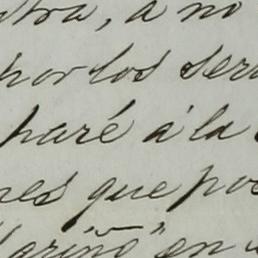 ntra, a no
por los ser
paré a la
nes que po
ariño" en